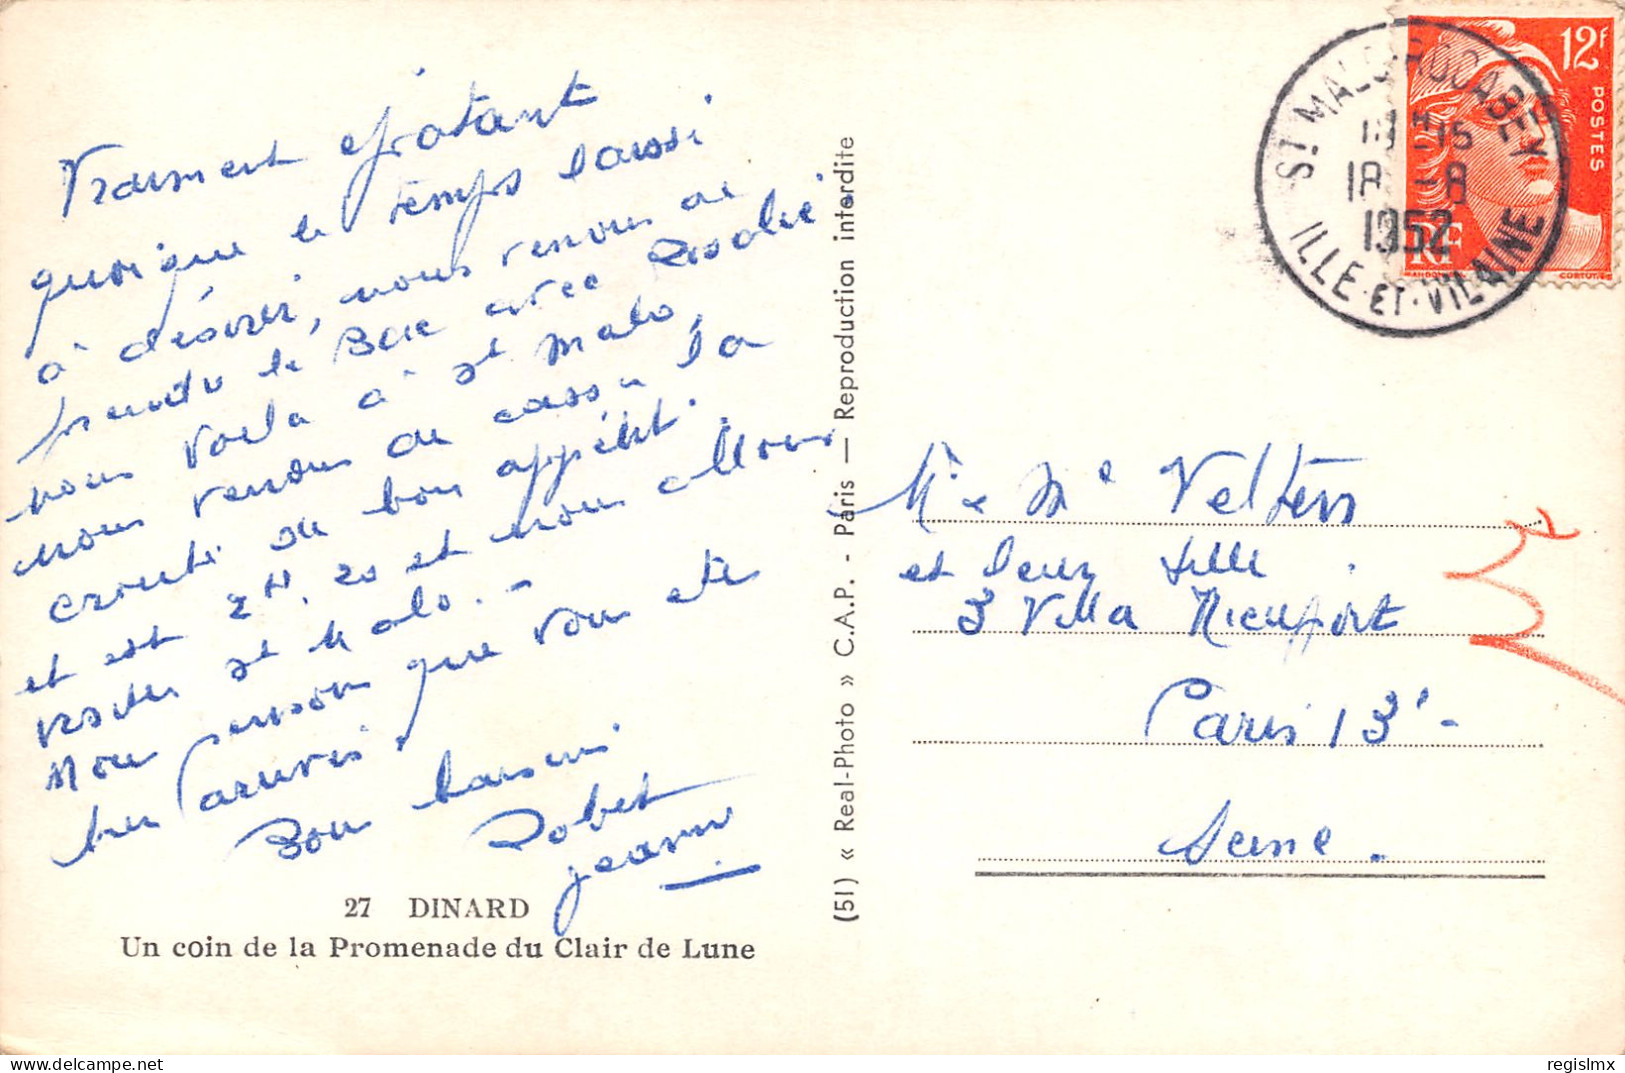 Vraiment épatant
quoique le temps laissi
à désirer, nous venons de
prendre le Bac avec Rosalie
nous voila à St Malo,
nous venons de casser la
croute de bon appétit.
il est 2H,20 et nous allons
visiter St Malo. -
Nous pensons que vous etes
bien arrivés.
Bon baisers
Robert
Jeanne
27 DINARD
Un coin de la Promenade du Clair de Lune
(51) « Real-Photo » C.A.P. - Paris — Reproduction interdite
ST MALO-ROCABEY
18 -8
1952
ILLE-ET-VILAINE
12f
POSTES
RF
GANDON
CORTOT.SC
Mr & Me Velters
et leur fille
3 Villa Nieuport
Paris 13e -
Seine.
regislmx